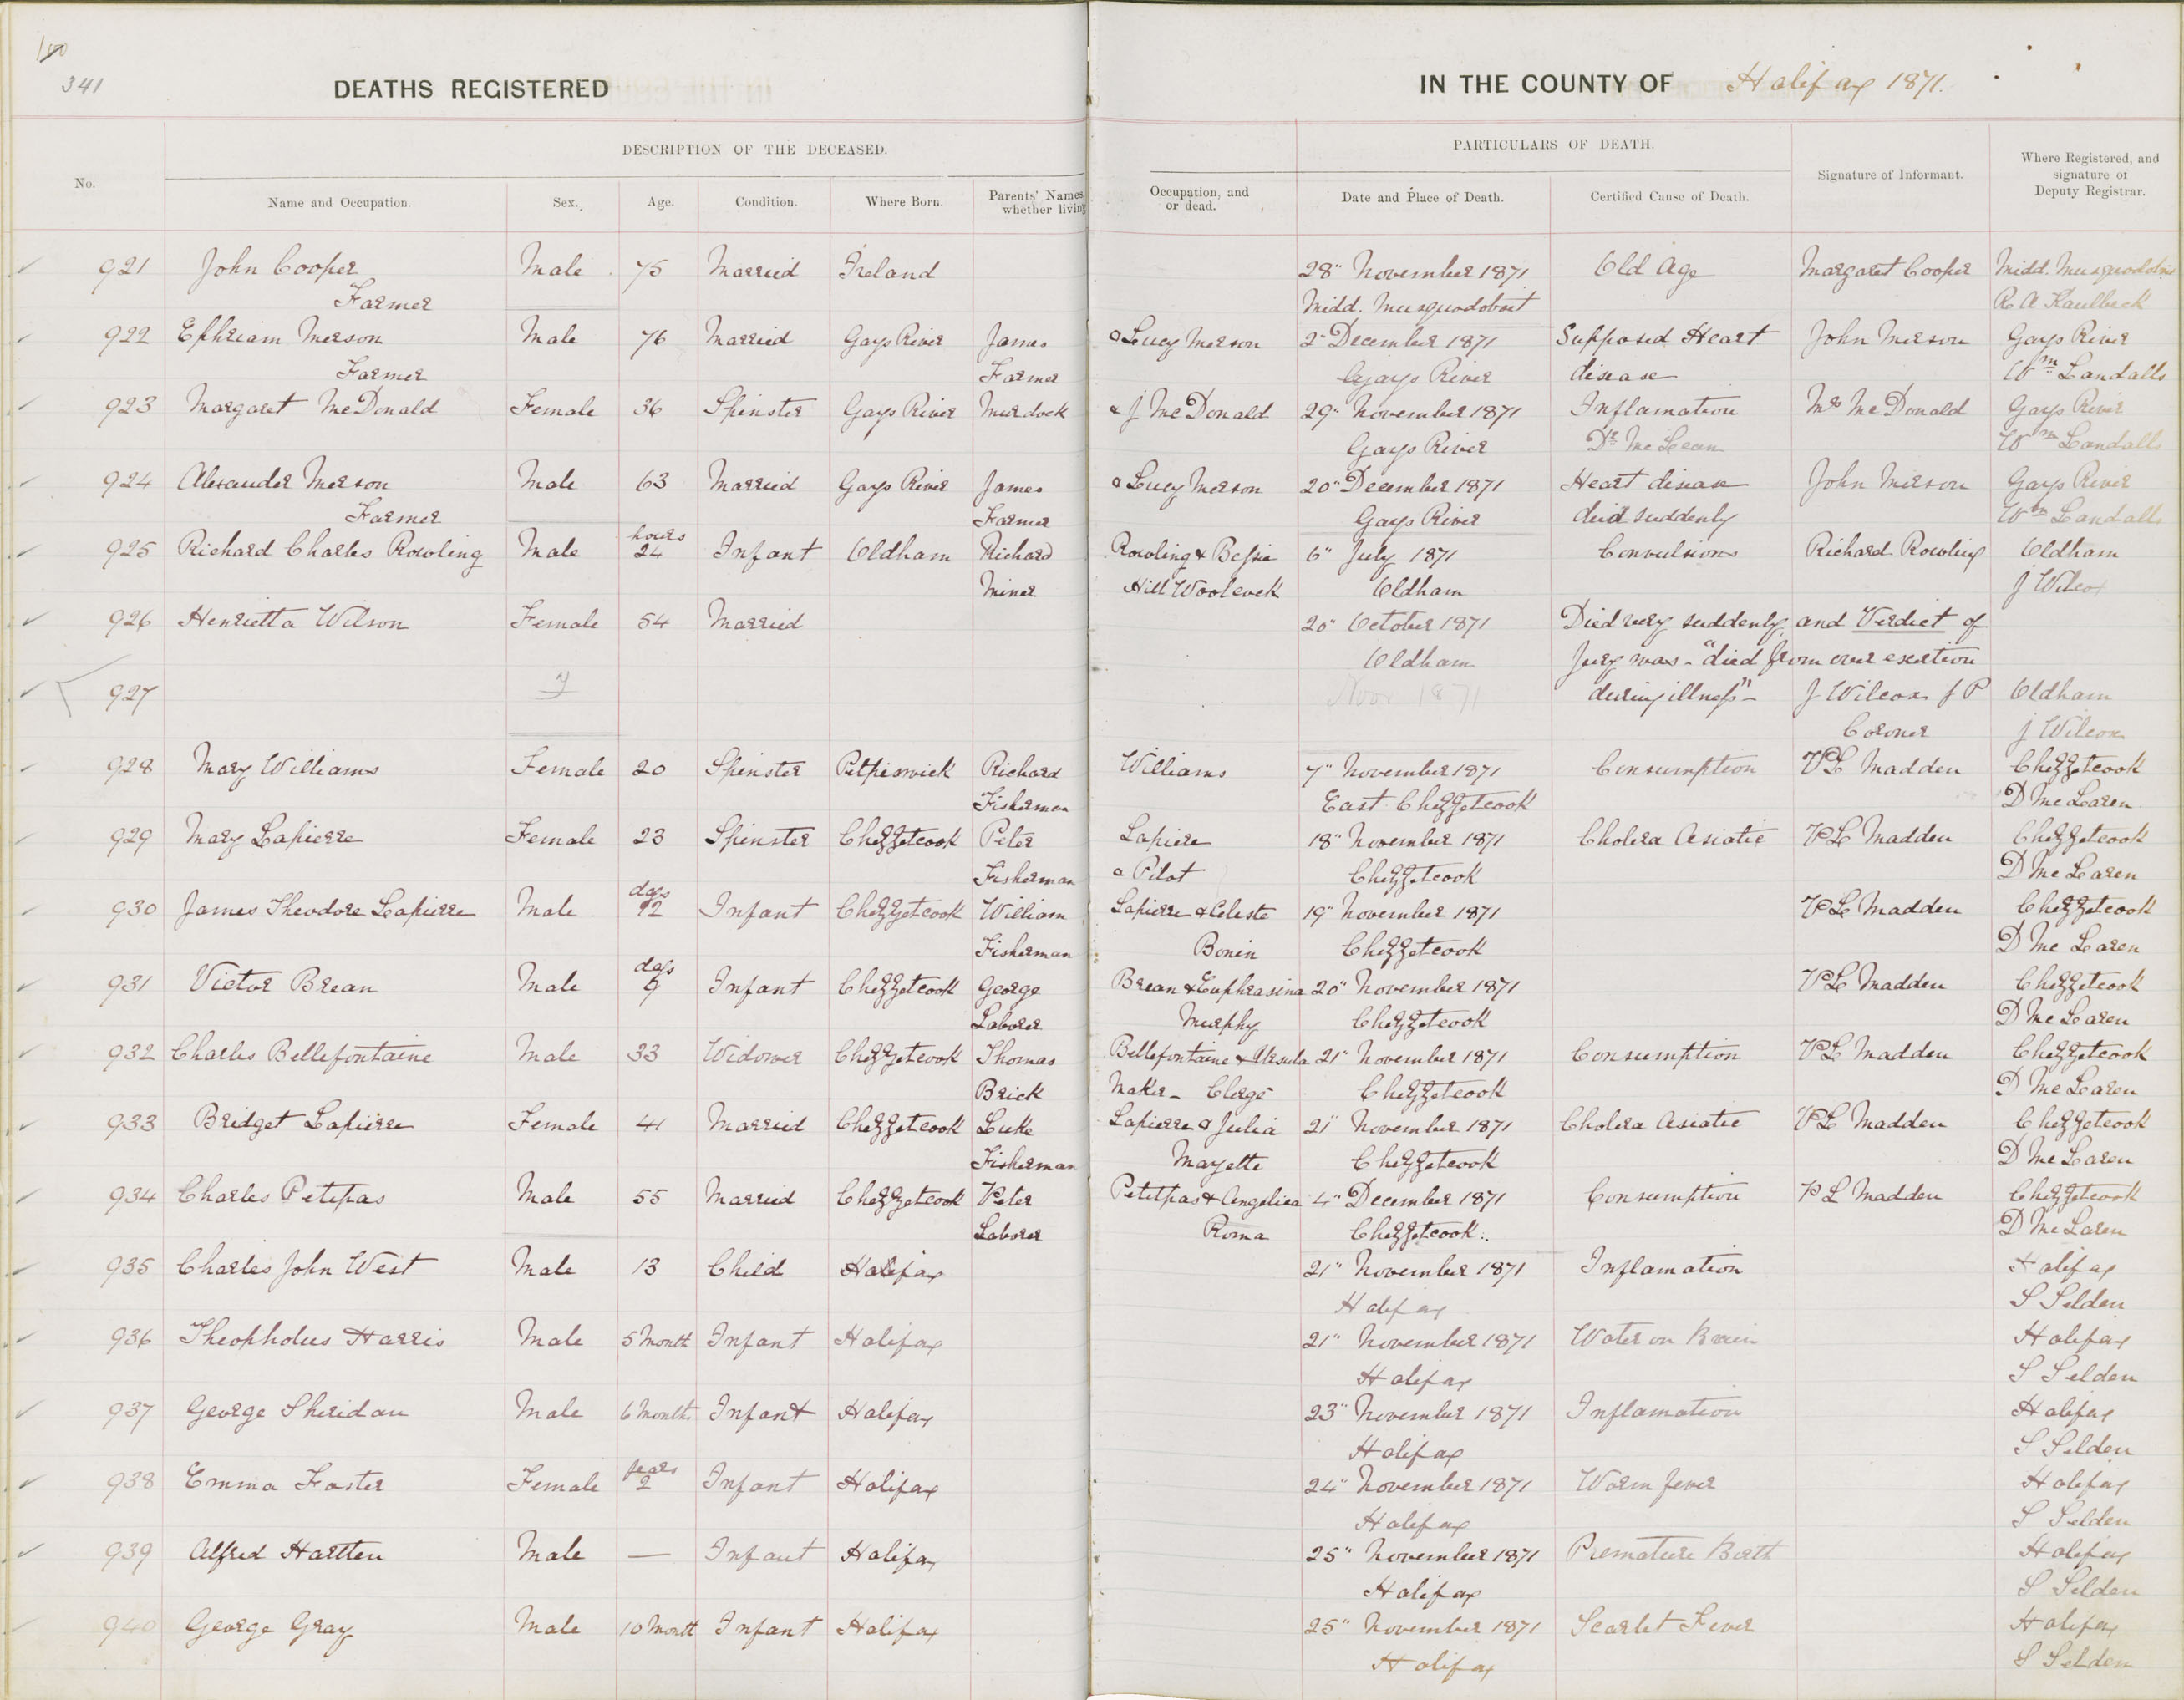 100
341
DEATHS REGISTERED IN THE COUNTY OF Halifax 1871.
DESCRIPTION OF THE DECEASED. PARTICULARS OF DEATH.
No. Name and Occupation. Sex. Age. Condition. Where Born. Parents' Names, whether living Occupation, and or dead. Date and Place of Death. Certified Cause of Death. Signature of Informant. Where Registered, and signature of Deputy Registrar.
921 John Cooper Male 75 Married Ireland 28" November 1871 Old Age Margaret Cooper Midd. Musquodobit
Farmer Midd. Musquodoboit R A Kaulbeck
922 Ephriam Merson Male 76 Married Gays River James & Lucy Merson 2" December 1871 Supposed Heart John Merson Gays River
Farmer Farmer Gays River disease Wm Landalls
923 Margaret McDonald Female 36 Spinster Gays River Murdock & J McDonald 29" November 1871 Inflamation Mrs McDonald Gays River
Gays River Dr McLean Wm Landalls
924 Alexander Merson Male 63 Married Gays River James & Lucy Merson 20" December 1871 Heart disease John Merson Gays River
Farmer Farmer Gays River died suddenly Wm Landalls
925 Richard Charles Rowling Male hours 24 Infant Oldham Richard Rowling & Bessie 6" July 1871 Convulsions Richard Rowling Oldham
Miner Hill Woolcock Oldham J Wilcox
926 Henrietta Wilson Female 54 Married 20" October 1871 Died very suddenly and Verdict of
Oldham Jury was - "died from over exertion
927 Nov 1871 during illness" - J Wilcox J P Oldham
Coroner J Wilcox
928 Mary Williams Female 20 Spinster Petpiswick Richard Williams 7" November 1871 Consumption P L Madden Chezzetcook
Fisherman East Chezzetcook D McLaren
929 Mary Lapierre Female 23 Spinster Chezzetcook Peter Lapiere 18" November 1871 Cholera Asiatic P L Madden Chezzetcook
Fisherman & Pilot Chezzetcook D McLaren
930 James Theodore Lapierre Male days 12 Infant Chezzetcook William Lapierre & Celeste 19" November 1871 P L Madden Chezzetcook
Fisherman Bonin Chezzetcook D McLaren
931 Victor Brean Male days 9 Infant Chezzetcook George Brean & Euphrasina 20" November 1871 P L Madden Chezzetcook
Laborer Murphy Chezzetcook D McLaren
932 Charles Bellefontaine Male 33 Widower Chezzetcook Thomas Bellefontaine & Ursula 21" November 1871 Consumption P L Madden Chezzetcook
Brick Maker - Clergé Chezzetcook D McLaren
933 Bridget Lapierre Female 41 Married Chezzetcook Luke Lapierre & Julia 21" November 1871 Cholera Asiatic P L Madden Chezzetcook
Fisherman Mayette Chezzetcook D McLaren
934 Charles Petipas Male 55 Married Chezzetcook Peter Petitpas & Angelica 4" December 1871 Consumption P L Madden Chezzetcook
Laborer Roma Chezzetcook D McLaren
935 Charles John West Male 13 Child Halifax 21" November 1871 Inflamation Halifax
Halifax S Selden
936 Theopholus Harris Male 5 Month Infant Halifax 21" November 1871 Water on Brain Halifax
Halifax S Selden
937 George Sheridan Male 6 Months Infant Halifax 23" November 1871 Inflamation Halifax
Halifax S Selden
938 Emma Foster Female years 2 Infant Halifax 24" November 1871 Worm fever Halifax
Halifax S Selden
939 Alfred Hartten Male — Infant Halifax 25" November 1871 Premature Birth Halifax
Halifax S Selden
940 George Gray Male 10 Month Infant Halifax 25" November 1871 Scarlet Fever Halifax
Halifax S Selden